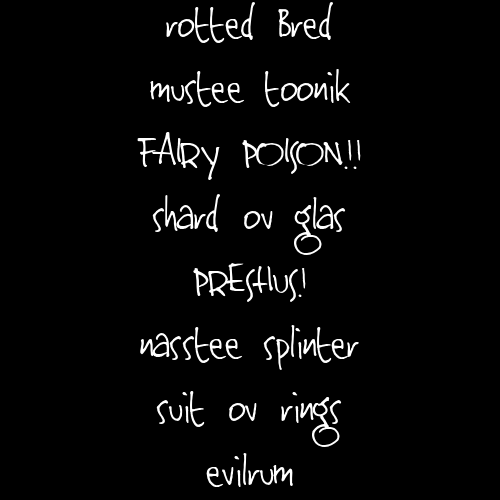 rotted Bred
mustee toonik
FAIRY POISON!!
shard ov glas
PRESHUS!
nasstee splinter
suit ov rings
evilrum